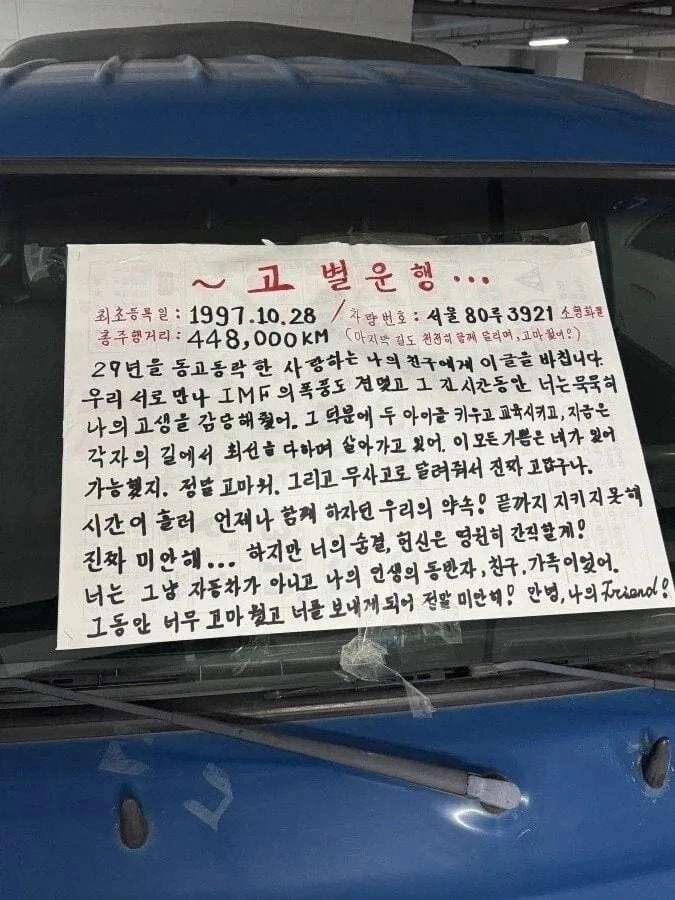 ~ 고 별 운 행 ...
최초등록일 : 1997.10.28 / 차량번호 : 서울 80루 3921 소형화물
총주행거리 : 448,000KM (마지막 길도 천천히 함께 달리며, 고마웠어!)
29년을 동고동락 한 사랑하는 나의 친구에게 이 글을 바칩니다.
우리 서로 만나 IMF의 폭풍도 견뎠고 그 긴 시간동안 너는 묵묵히
나의 고생을 감당해줬어. 그 덕분에 두 아이를 키우고 교육시키고, 지금은
각자의 길에서 최선을 다하며 살아가고 있어. 이 모든 기쁨은 네가 있어
가능했지. 정말 고마워. 그리고 무사고로 달려줘서 진짜 고맙구나.
시간이 흘러 언제나 함께 하자던 우리의 약속! 끝까지 지키지 못해
진짜 미안해... 하지만 너의 숨결, 헌신은 영원히 간직할게!
너는 그냥 자동차가 아니고 나의 인생의 동반자, 친구, 가족이었어.
그동안 너무 고마웠고 너를 보내게 되어 정말 미안해! 안녕, 나의 Friend!